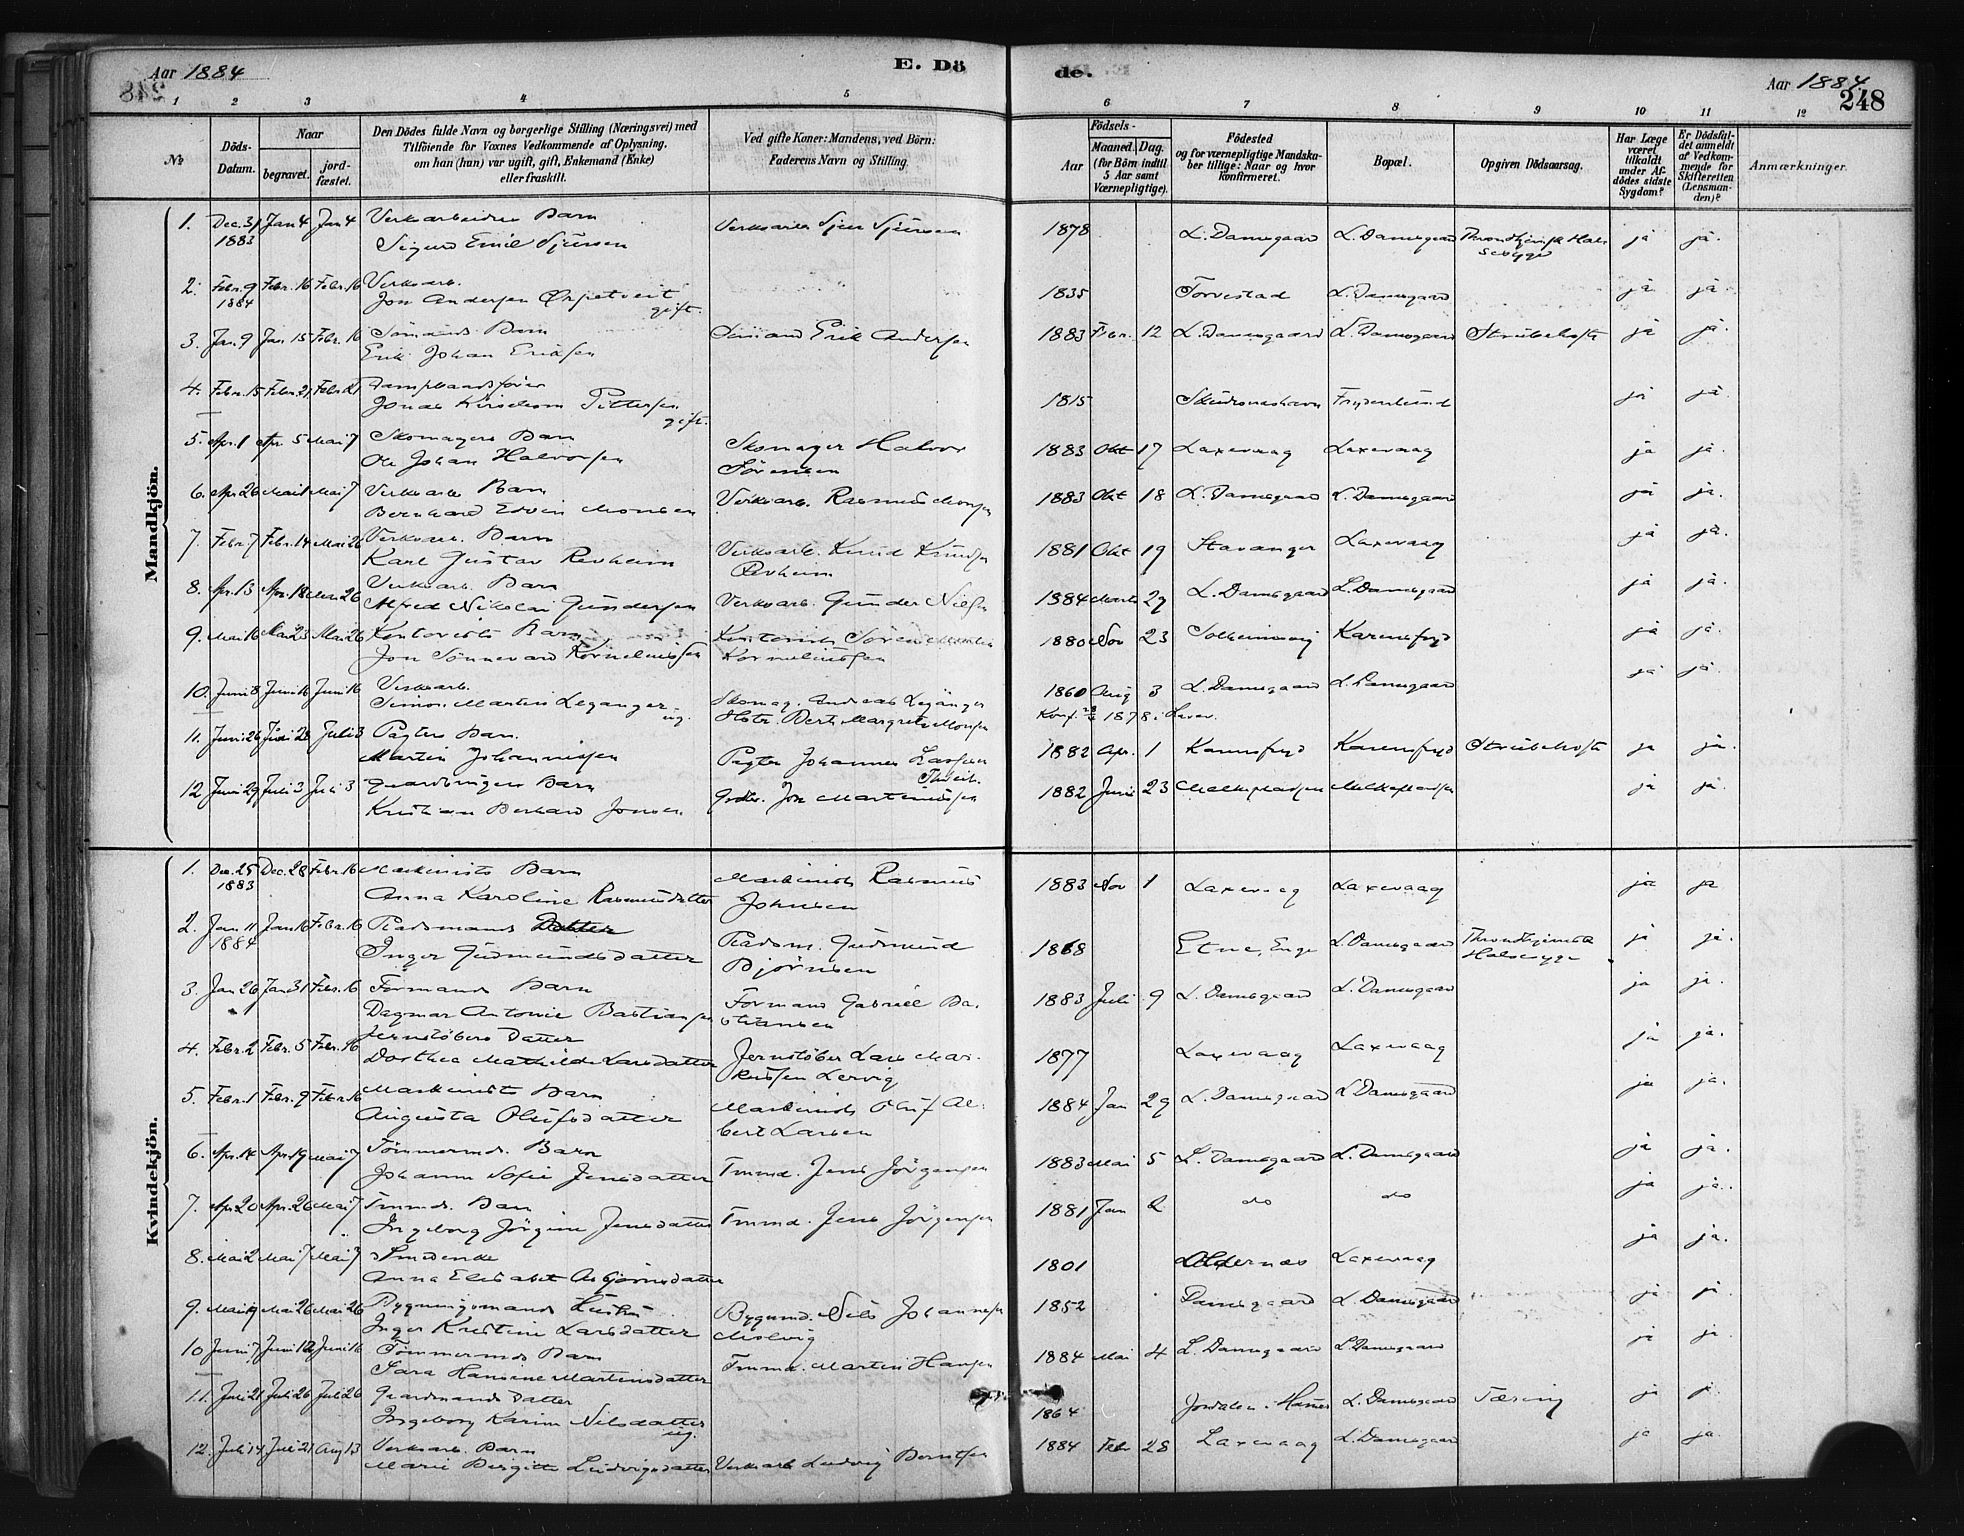 Aar 1884 E. Dö de. Aar 1884.
248
1 2 3 4 5 6 7 8 9 10 11 12
No
Döds-Datum.
Naar
begravet.
jord-fæstet.
Den Dödes fulde Navn og borgerlige Stilling (Næringsvei) med
Tilföiende for Voxnes Vedkommende af Oplysning,
om han (hun) var ugift, gift, Enkemand (Enke)
eller fraskilt.
Ved gifte Koner: Mandens, ved Börn:
Faderens Navn og Stilling.
Födsels-
Aar
Maaned. Dag.
(for Börn indtil
5 Aar samt
Værnepligtige).
Födested
og for værnepligtige Mandska-
ber tillige: Naar og hvor
konfirmeret.
Bopæl.
Opgiven Dödsaarsag.
Har Læge
været
tilkaldt
under Af-
dödes sidste
Sygdom?
Er Dödsfal-
det anmeldt
af Vedkom-
mende for
Skifteretten
(Lensman-
den)?
Anmærkninger.
Mandkjön.
1. Dec. 31 Jan 4 Jan 4 Verksarbeiders Barn Verksarb. Sjur Sjursen 1878 L. Damsgaard L. Damsgaard Throndhjemsk Hals ja ja.
1883 Sigurd Emil Sjursen
2. Febr. 9 Febr. 16 Febr. 16 Verksarb. 1835 Torvestad L. Damsgaard ja ja.
1884 Jon Andersen gift.
3. Jan. 9 Jan 15 Febr. 16 Sömands Barn Sömand Erik Andersen 1883 Febr. 12 L. Damsgaard L. Damsgaard Strubehoste ja ja.
Erik Johan Eriksen
4. Febr. 15 Febr. 21 Febr. 21 1815 Skudesneshavn Frydenlund ja ja.
Jonas Pettersen gift.
5. Apr. 1 Apr. 5 Mai 7 Skomagers Barn Skomager Halvor 1883 Okt 17 Laxevaag Laxevaag ja ja.
Ole Johan Halvorsen Sörensen
6. Apr. 26 Mai 1 Mai 7 Verksarb. Barn Verksarb. Rasmus Monsen 1883 Okt 18 L. Damsgaard L. Damsgaard ja ja.
Bernhard Edvin Monsen
7. Febr. 7 Febr. 14 Mai 26 Verksarb. Barn Verksarb. Knud Knudsen 1881 Okt 19 Stavanger Laxevaag ja ja.
Karl Gustav Revheim Revheim
8. Apr. 13 Apr. 18 Mai 26 Verksarb. Barn Verksarb. Gunder Nielsen 1884 Marts 29 L. Damsgaard L. Damsgaard ja ja.
Alfred Nikolai Gundersen
9. Mai 16 Mai 23 Mai 26 Kontorists Barn Kontorist Sören 1880 Nov 23 Solheimsvig Karensfryd ja ja.
Jon Sönnevard Korneliussen Korneliussen
10. Juni 8 Juni 16 Juni 16 Verksarb. Skomag. Andreas Leganger 1860 Aug 3 L. Damsgaard L. Damsgaard ja ja.
Simon Martin Leganger ug. Hstr. Berte Margrete Monsen Konf. 1878 i Laxev.
11. Juni 26 Juni 28 Juli 3 Pagters Barn Pagter Johannes Larsen 1882 Apr. 1 Karensfryd Karensfryd Strubehoste ja ja.
Martin Johannessen
12 Juni 29 Juli 3 Juli 3 Gaardbrugers Barn Grdbr. Jon Martinussen 1882 Juni 23 ja ja.
Kristian Berhard Jonsen
Kvindekjön.
1. Dec. 25 Dec. 28 Febr. 16 Maskinists Barn Maskinist Rasmus 1883 Nov 1 Laxevaag Laxevaag ja ja
1883 Anna Karoline Rasmusdatter Johnsen
2. Jan. 11 Jan 16 Febr. 16 Pladsmands Datter Pladsm. Gudmund 1868 Etne, Enge L. Damsgaard Throndhjemsk ja ja.
1884 Inger Gudmundsdatter Björnsen Halssyge
3. Jan 26 Jan 31 Febr. 16 Formands Barn Formand Gabriel Ba- 1883 Juli 9 L. Damsgaard L. Damsgaard ja ja.
Dagmar Antonie Bastiansen stiansen
4. Febr. 2 Febr. 5 Febr. 16 Jernstöbers Datter Jernstöber Lars Mar- 1877 Laxevaag Laxevaag ja ja.
Dorthea Mathilde Larsdatter kussen Lervig
5. Febr. 1 Febr. 9 Febr. 16 Maskinists Barn Maskinist Oluf Al- 1884 Jan 29 L. Damsgaard L. Damsgaard ja ja.
Augusta Olufsdatter bert Larsen
6. Apr. 14 Apr. 19 Mai 7 Tömmermds. Barn Tmmd. Jens Jörgensen 1883 Mai 5 L. Damsgaard L. Damsgaard ja ja.
Johanne Sofie Jensdatter
7. Apr. 20 Apr. 26 Mai 7 Tmmds. Barn Tmmd. Jens Jörgensen 1881 Jan 2 do do ja ja.
Ingeborg Jörgine Jensdatter
8. Mai 2 Mai 7 Mai 7 1801 Laxevaag ja ja.
Anna Elisabet Asbjörnsdatter
9. Mai 19 Mai 26 Mai 26 Bygningsmands Hustru Bygnmd. Nils Johannesen 1852 Damsgaard L. Damsgaard ja ja.
Inger Kristine Larsdatter Molvig
10 Juni 7 Juni 12 Juni 16 Tömmermds Barn Tmmd. Martin Hansen 1884 Mai 4 L. Damsgaard L. Damsgaard ja ja.
Sara Hansine Martinsdatter
11. Juli 21 Juli 26 Juli 26 Gaardmands Datter 1864 L. Damsgaard Tæring ja ja.
Ingeborg Karine Nilsdatter ug.
12. Juli 14 Juli 21 Aug 13 Verksarb. Barn Verksarb Ludvig Berntsen 1884 Febr 28 Laxevaag L. Damsgaard ja ja.
Marie Birgitte Ludvigsdatter